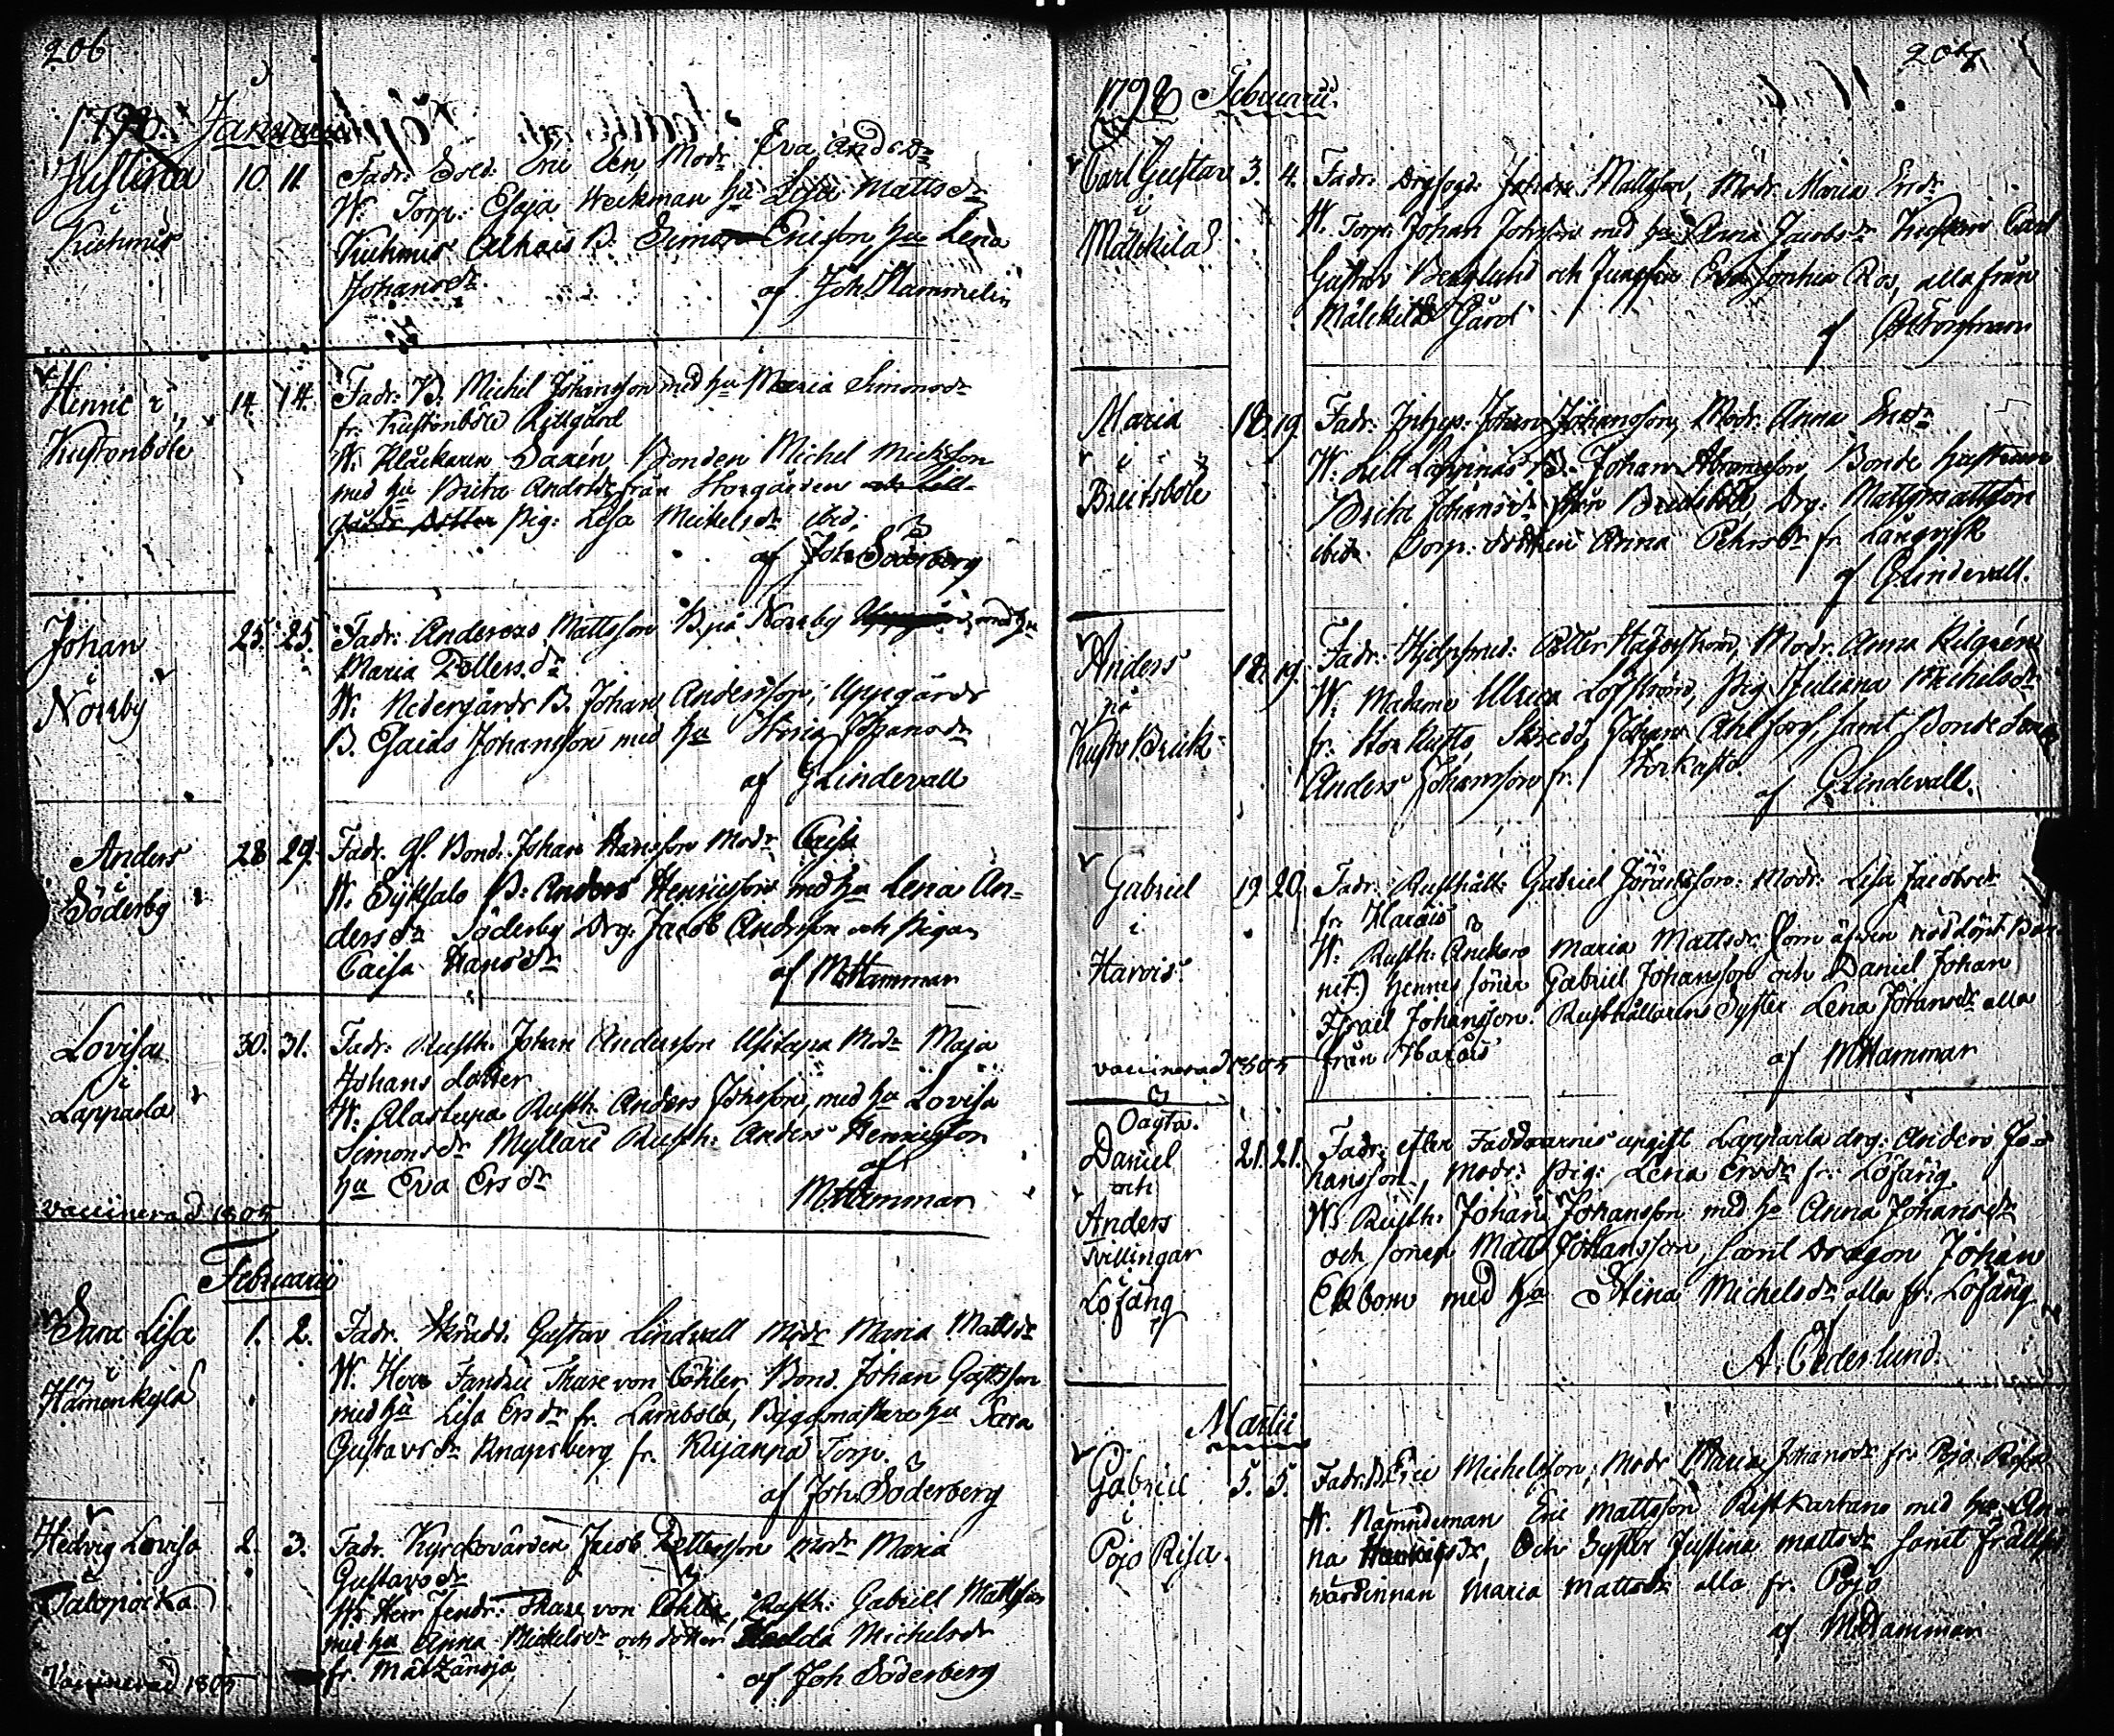 206
1798. Januarii
Justina 10. 11. Fadr. Sold. Eric Modr. Eva Andsdr
i W. Torp. Esaja Weckman hu Lisa Mattsdr
Kuhmis Kuhmis B: Simon Ericsson hu Lena
Johansdr. af Joh. Hammelin
Henric i 14. 14. Fadr. B. Michel Johansson med hu Maria Simonsdr
Kustonböle fr. Kustonböle Lillgård
W. Klåckaren Saxén, Bonden Michel Michsson
med hu Brita Andrsdr från Storgården
dotter Pig: Lisa Mickelsdr ibid.
af Joh. Söderberg
Johan 25. 25. Fadr: Anderas Mattsson B. på Norrby med hu
i Maria Tellersdr
Norrby W. Nedergårds B. Johan Andersson, Uppgårds
B. Gaias Johansson med hu Stina Johansdr
af G Lindevall
Anders 28 29. Fadr. gl. Bond. Johan Hansson Modr Caisa
i W. Syksalo B: Anders Henricsson med hu Lena An-
Söderby dersdr Söderby Drg. Jacob Andersson och Pigan
Caisa Hansdr af M Hammar
Lovisa 30. 31. Fadr. Rusth. Johan Andersson Modr Maja
i Johans dotter
Lappdala W. Alastupa Rusth. Anders Johsson, med hu Lovisa
Simonsdr Myllare Rusth. Anders Henricsson
hu Eva Ersdr af M Hammar
vaccinerad 1805
Februarii
Sara Lisa 1. 2. Fadr. Skrädd. Gustav Lindwall Modr Maria Mattsdr
i W. Herr Fändric Thure von Cöhler Bond. Johan Gustsson
Hämenkylä med hu Lisa Ersdr fr. Lambola, Byggmästare hu Sara
Gustavsdr Knapsberg fr. Torp.
af Joh. Söderberg
Hedvig Lovisa 2. 3. Fadr. Kyrckovärden Jacob Pettersson Modr Maria
i Gustavsdr
Palopocka W. Herr Fendr: Thure von Cöhler, Rusth: Gabriel Mattsson
med hu Anna Mickelsdr och dotter Hedda Michelsdr
fr. af Joh Söderberg
Vaccinerad 1805
207
1798 Februarii.
Carl Gustav 3. 4. Fadr. Johan Mattsson, Modr Maria Ersdr
i W. Torp. Johan Johsson med hu Anna Jacobsdr Carl
Mälckilä Gustav Berglund och Jungfru Eva Sophia Ros, alla från
Mälckilä Gård af Forsman
Maria 18. 19. Fadr. Inhys: Johan Johansson, Modr: Anna Ersdr
i W. Lill Lappnäs B. Johan Abramsson, Bonde hustrun
Breitsböle Brita Johansdr från Bredsböle, Drg. Matts Mattsson
ibid. Torp. dottren Anna Pehrsdr fr. Långnäsk
af G Lindevall.
Anders 18. 19. Fadr: Petter Hägerström, Modr: Anna Kilgrén
på W. Madame Ulrica Löfström, Pig. Juliana Michelsdr
Kusto Bruk. fr. Stor Kusto, Skredd. Johan Ahlfors, samt Bonde Son
Anders Johansson fr. Storkusto.
af G Lindevall.
Gabriel 19. 20. Fadr. Rusthåll: Gabriel Göranson: Modr: Lisa Jacobsdr
i fr. Harvis
Harvis. W. Rusth. Änckan Maria Mattsdr (som äfven nöddöpt Bar-
net) hennes söner Gabriel Johansson och Daniel Johan
Israel Johansson. Rusthållarens Syster Lena Johansdr alla
från Harvis af M Hammar
vaccinerad 1805
Oägta.
Daniel 21. 21. Fadr: efter Faddrarnes upgift Lappdala drg: Anders Jo-
och hansson, Modr: Pig: Lena Ersdr fr. Löfäng.
Anders W. Rusth: Johan Johansson med hu Anna Johansdr
Tvillingar och sonen Matts Johansson, samt Dragon Johan
i Ekbom med hu Stina Michelsdr alla fr. Löfäng
Löfäng af
A. Cederlund.
Martii
Gabriel 5. 5. Fadr. B. Eric Michelsson, Modr Maria Johansdr fr. Pojo Risa
i W. Nämndeman Eric Mattsson Ristkartano med hu An-
Pojo Risa. na Henricsdr, Och Syster Justina Mattsdr samt
värdinnan Maria Mattsdr alla fr. Pojo
af M Hammar